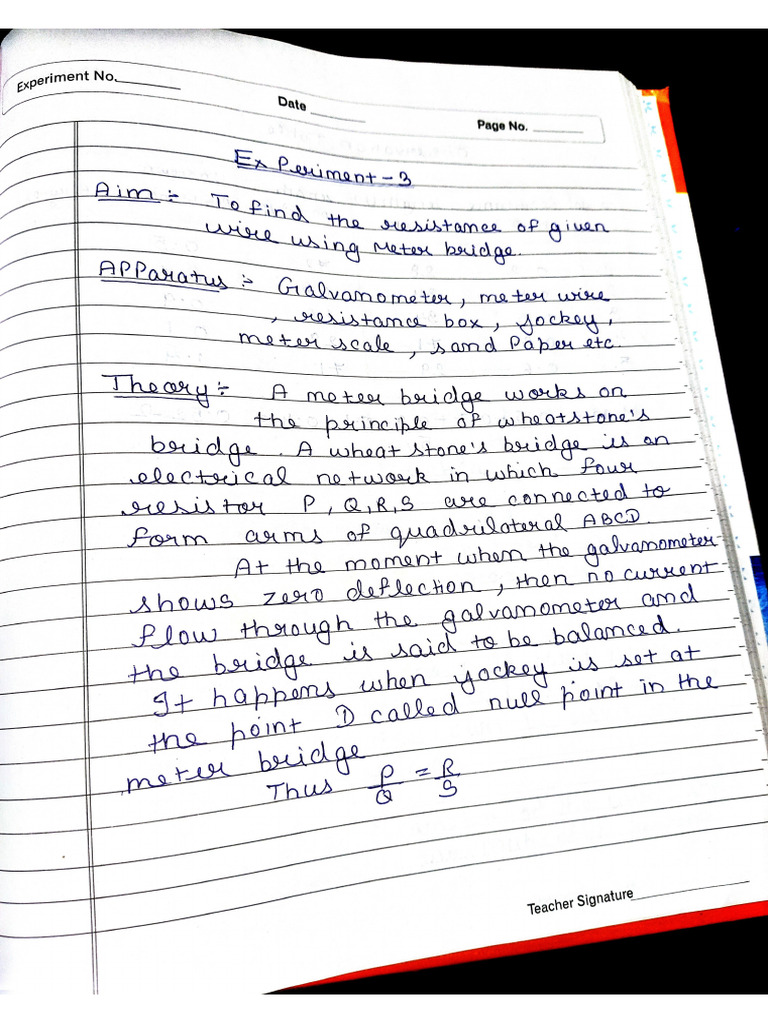 Experiment No.
Date
Page No.
Experiment-3
Aim :- To find the resistance of given
wire using Meter bridge.
APParatus :- Galvanometer, meter wire
, resistance box, Jockey,
meter scale, sand Paper etc.
Theory :- A meter bridge works on
the principle of wheatstone's
bridge. A wheat stone's bridge is an
electrical network in which four
resistor P, Q, R, S are connected to
form arms of quadrilateral ABCD.
At the moment when the galvanometer
shows zero deflection, then no current
flow through the galvanometer and
the bridge is said to be balanced.
It happens when jockey is set at
the point D called null point in the
meter bridge
Thus P/Q = R/S
Teacher Signature